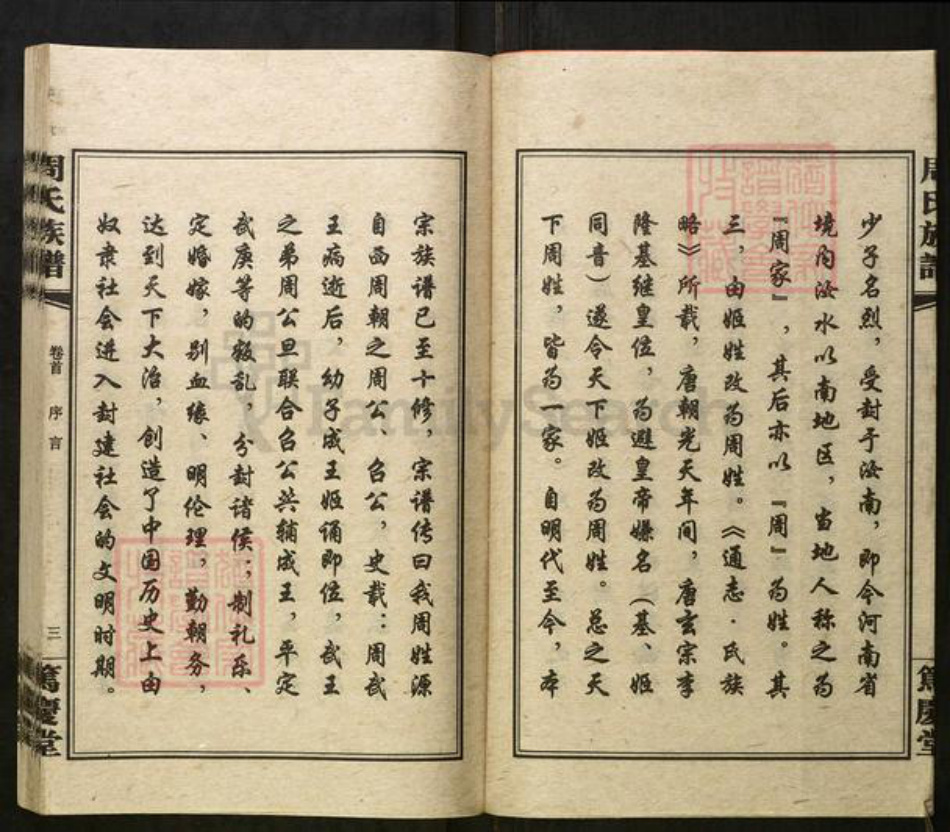 周氏族譜
少子名烈，受封于汝南，即今河南省
境内汝水以南地区，当地人称之为
『周家』，其后亦以『周』为姓。其
三，由姬姓改为周姓。《通志·氏族
略》所载，唐朝光天年间，唐玄宗李
隆基继皇位，为避皇帝嫌名（基、姬
同音）遂令天下姬改为周姓。总之天
下周姓，皆为一家。自明代至今，本
篤慶堂
宗族谱已至十修，宗谱传曰我周姓源
自西周朝之周公、召公，史载：周武
王病逝后，幼子成王姬诵即位，武王
之弟周公旦联合召公共辅成王，平定
武庚等的叛乱，分封诸侯；制礼乐、
定婚嫁，别血缘、明伦理，勤朝务，
达到天下大治，创造了中国历史上由
奴隶社会进入封建社会的文明时期。
周氏族譜
卷首 序言
三
篤慶堂
FamilySearch